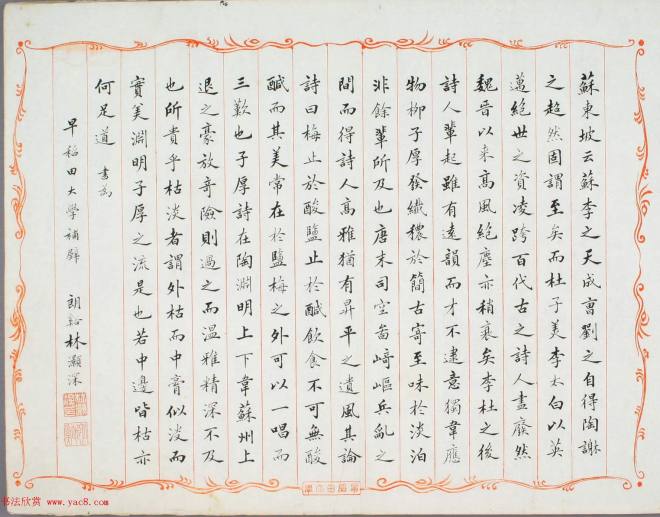 蘇東坡云蘇李之天成曹劉之自得陶謝
之超然固謂至矣而杜子美李太白以英
邁絕世之資凌跨百代古之詩人盡廢然
魏晉以来高風絕塵亦稍衰矣李杜之後
詩人輩起雖有遠韻而才不逮意獨韋應
物柳子厚發纖穠於簡古寄至味於淡泊
非餘輩所及也唐末司空啚崎嶇兵亂之
間而得詩人高雅猶有昇平之遺風其論
詩曰梅止於酸鹽止於鹹飲食不可無酸
鹹而其美常在於鹽梅之外可以一唱而
三歎也子厚詩在陶淵明上下韋蘇州上
退之豪放奇險則過之而溫雅精深不及
也所貴乎枯淡者謂外枯而中膏似淡而
實美淵明子厚之流是也若中邊皆枯亦
何足道 書為
早稻田大學補錦 朗谿林灝深
书法欣赏 www.yac8.com